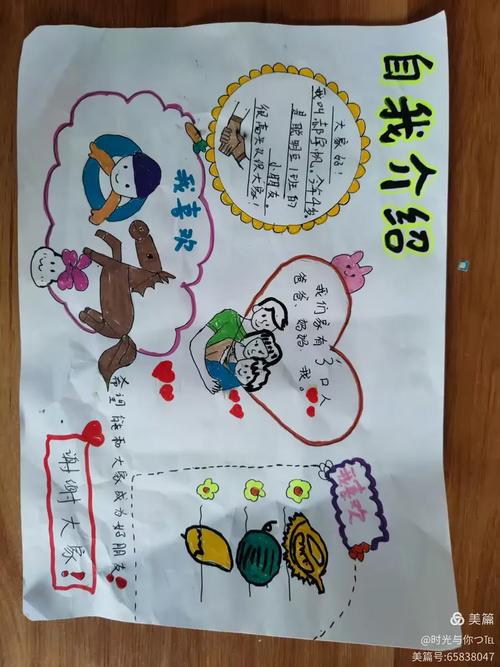 自我介绍
大家好！
我叫郝宇帆。今年4岁。
是聪明豆1班的
小朋友。
很高兴认识大家！
我喜欢
我们家有3口人
爸爸、妈妈、我。
我喜欢
希望能和大家成为好朋友！
谢谢大家！
美篇
@时光与你つ℡
美篇号:65838047